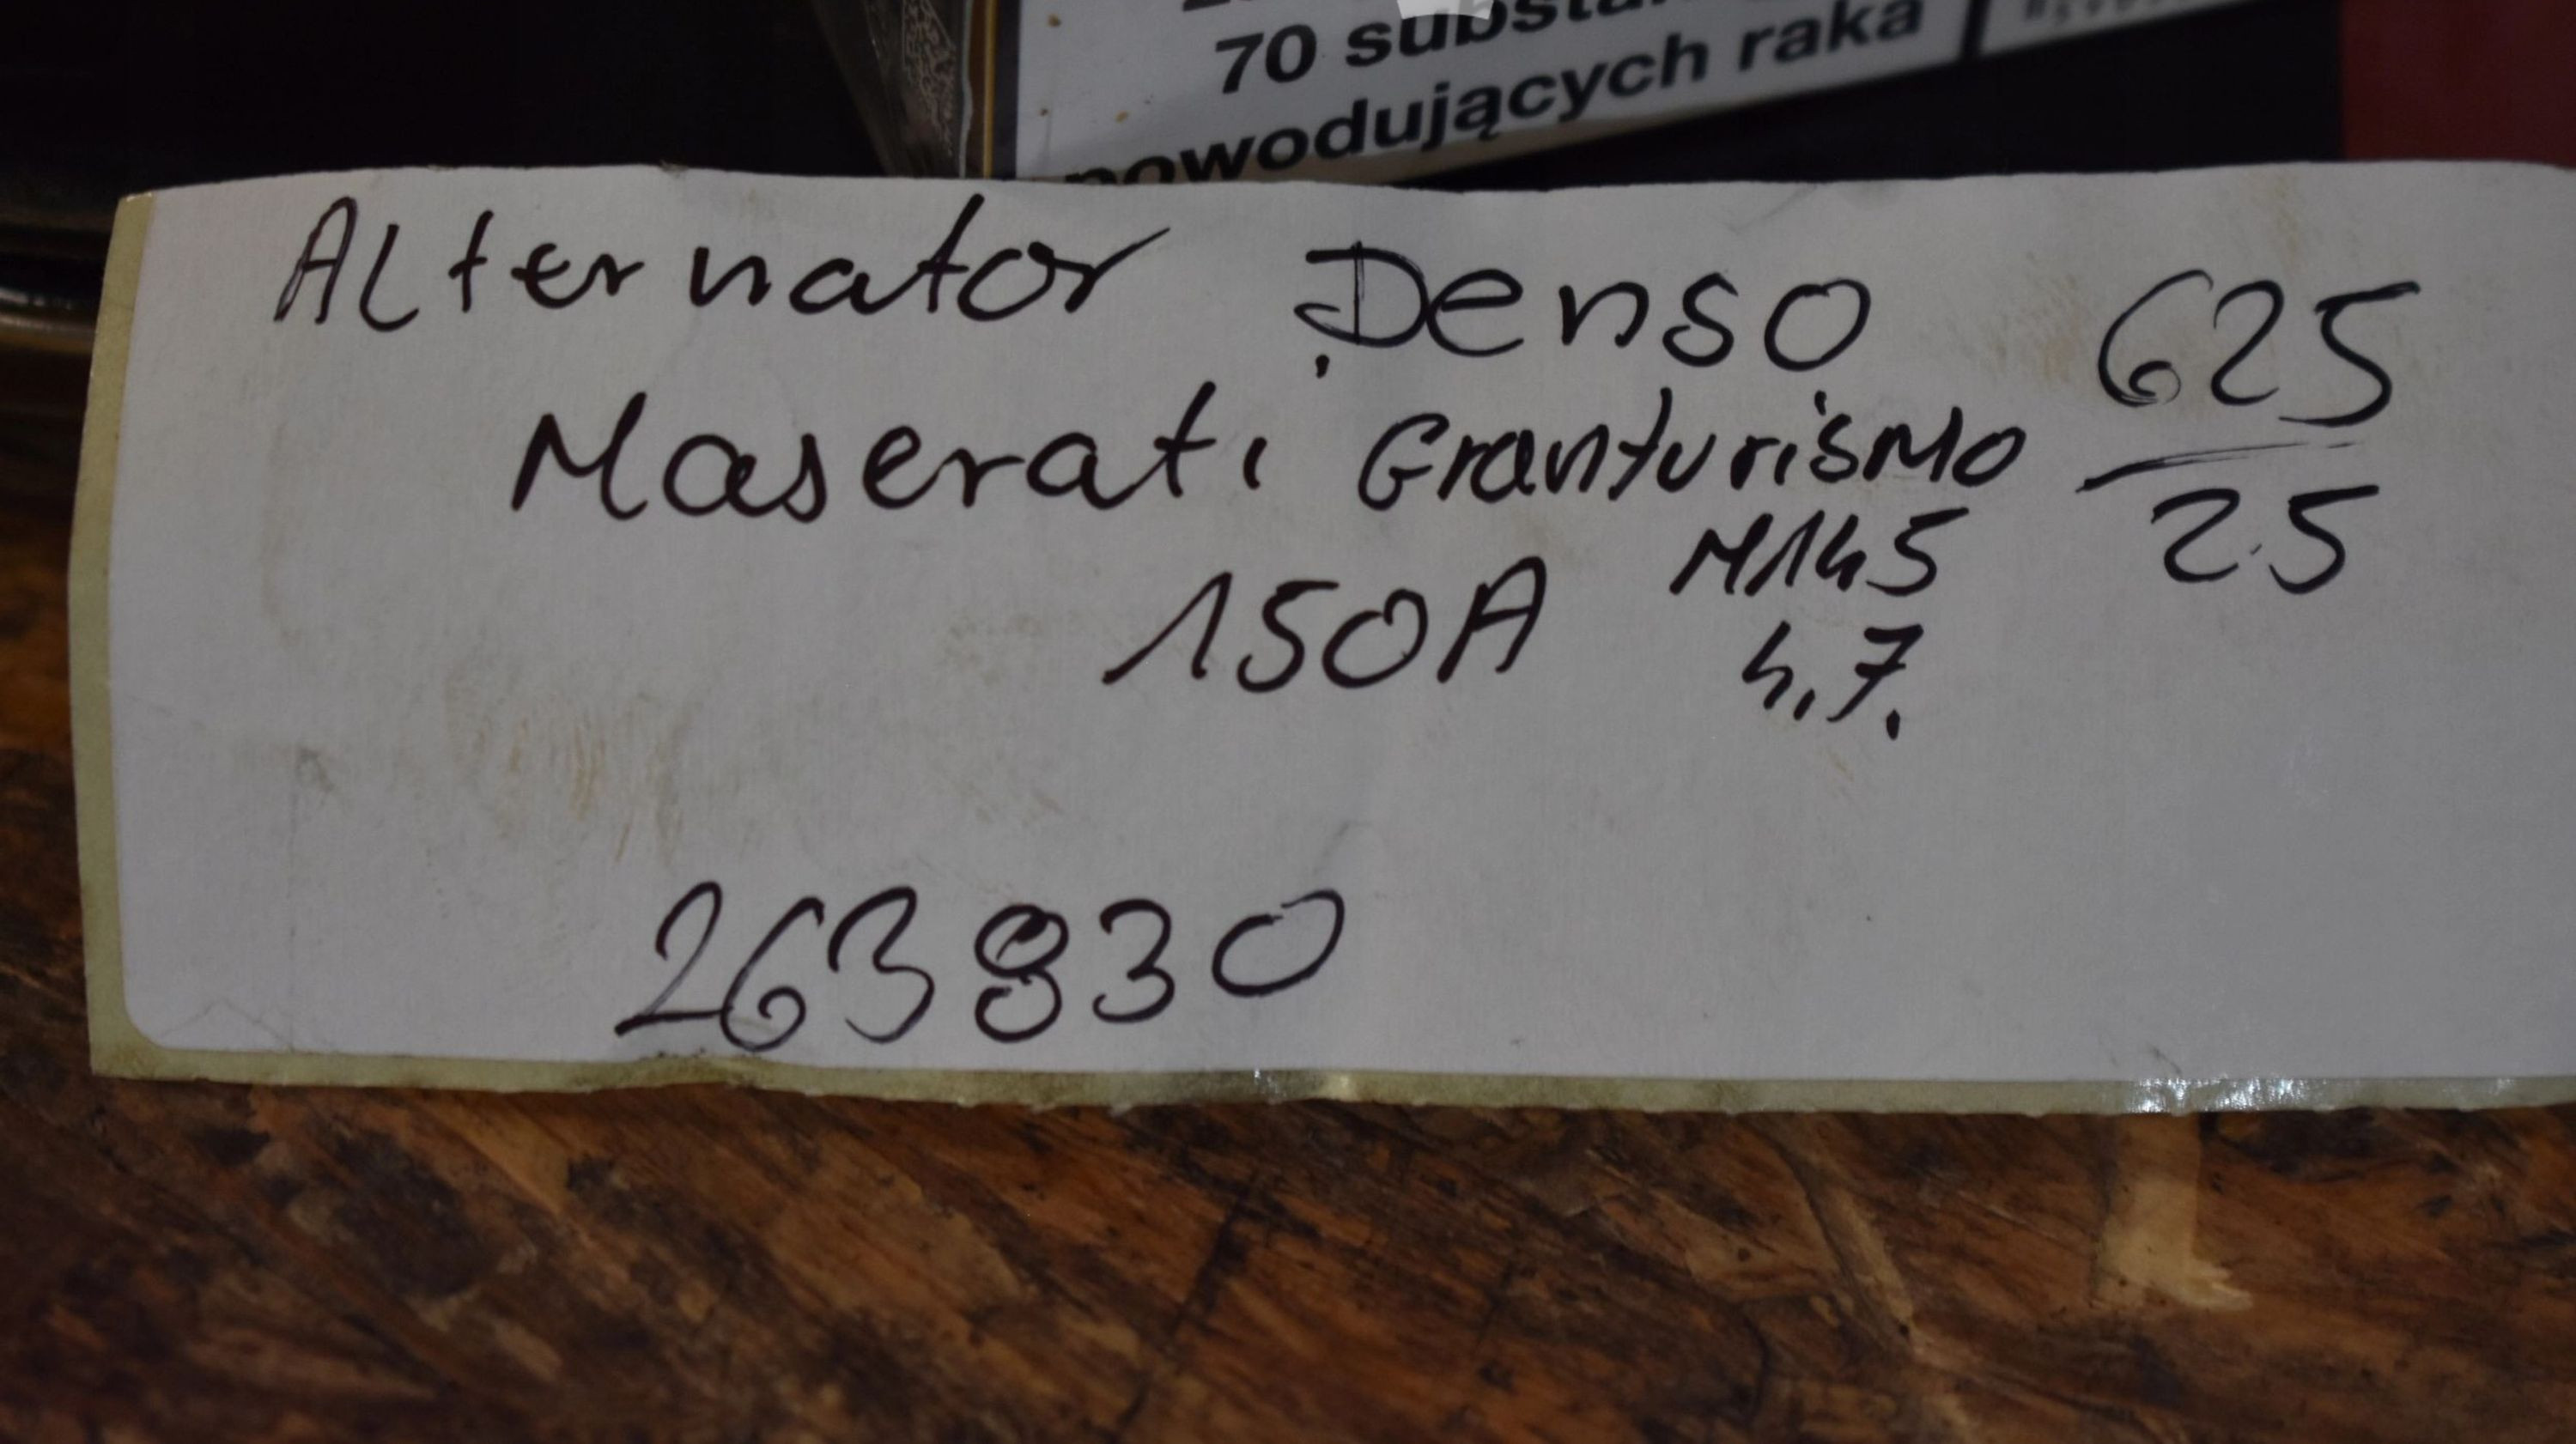 70
powodujących raka
Alternator Denso 625
Maserati Granturismo 25
150A M145
4,7.
263830